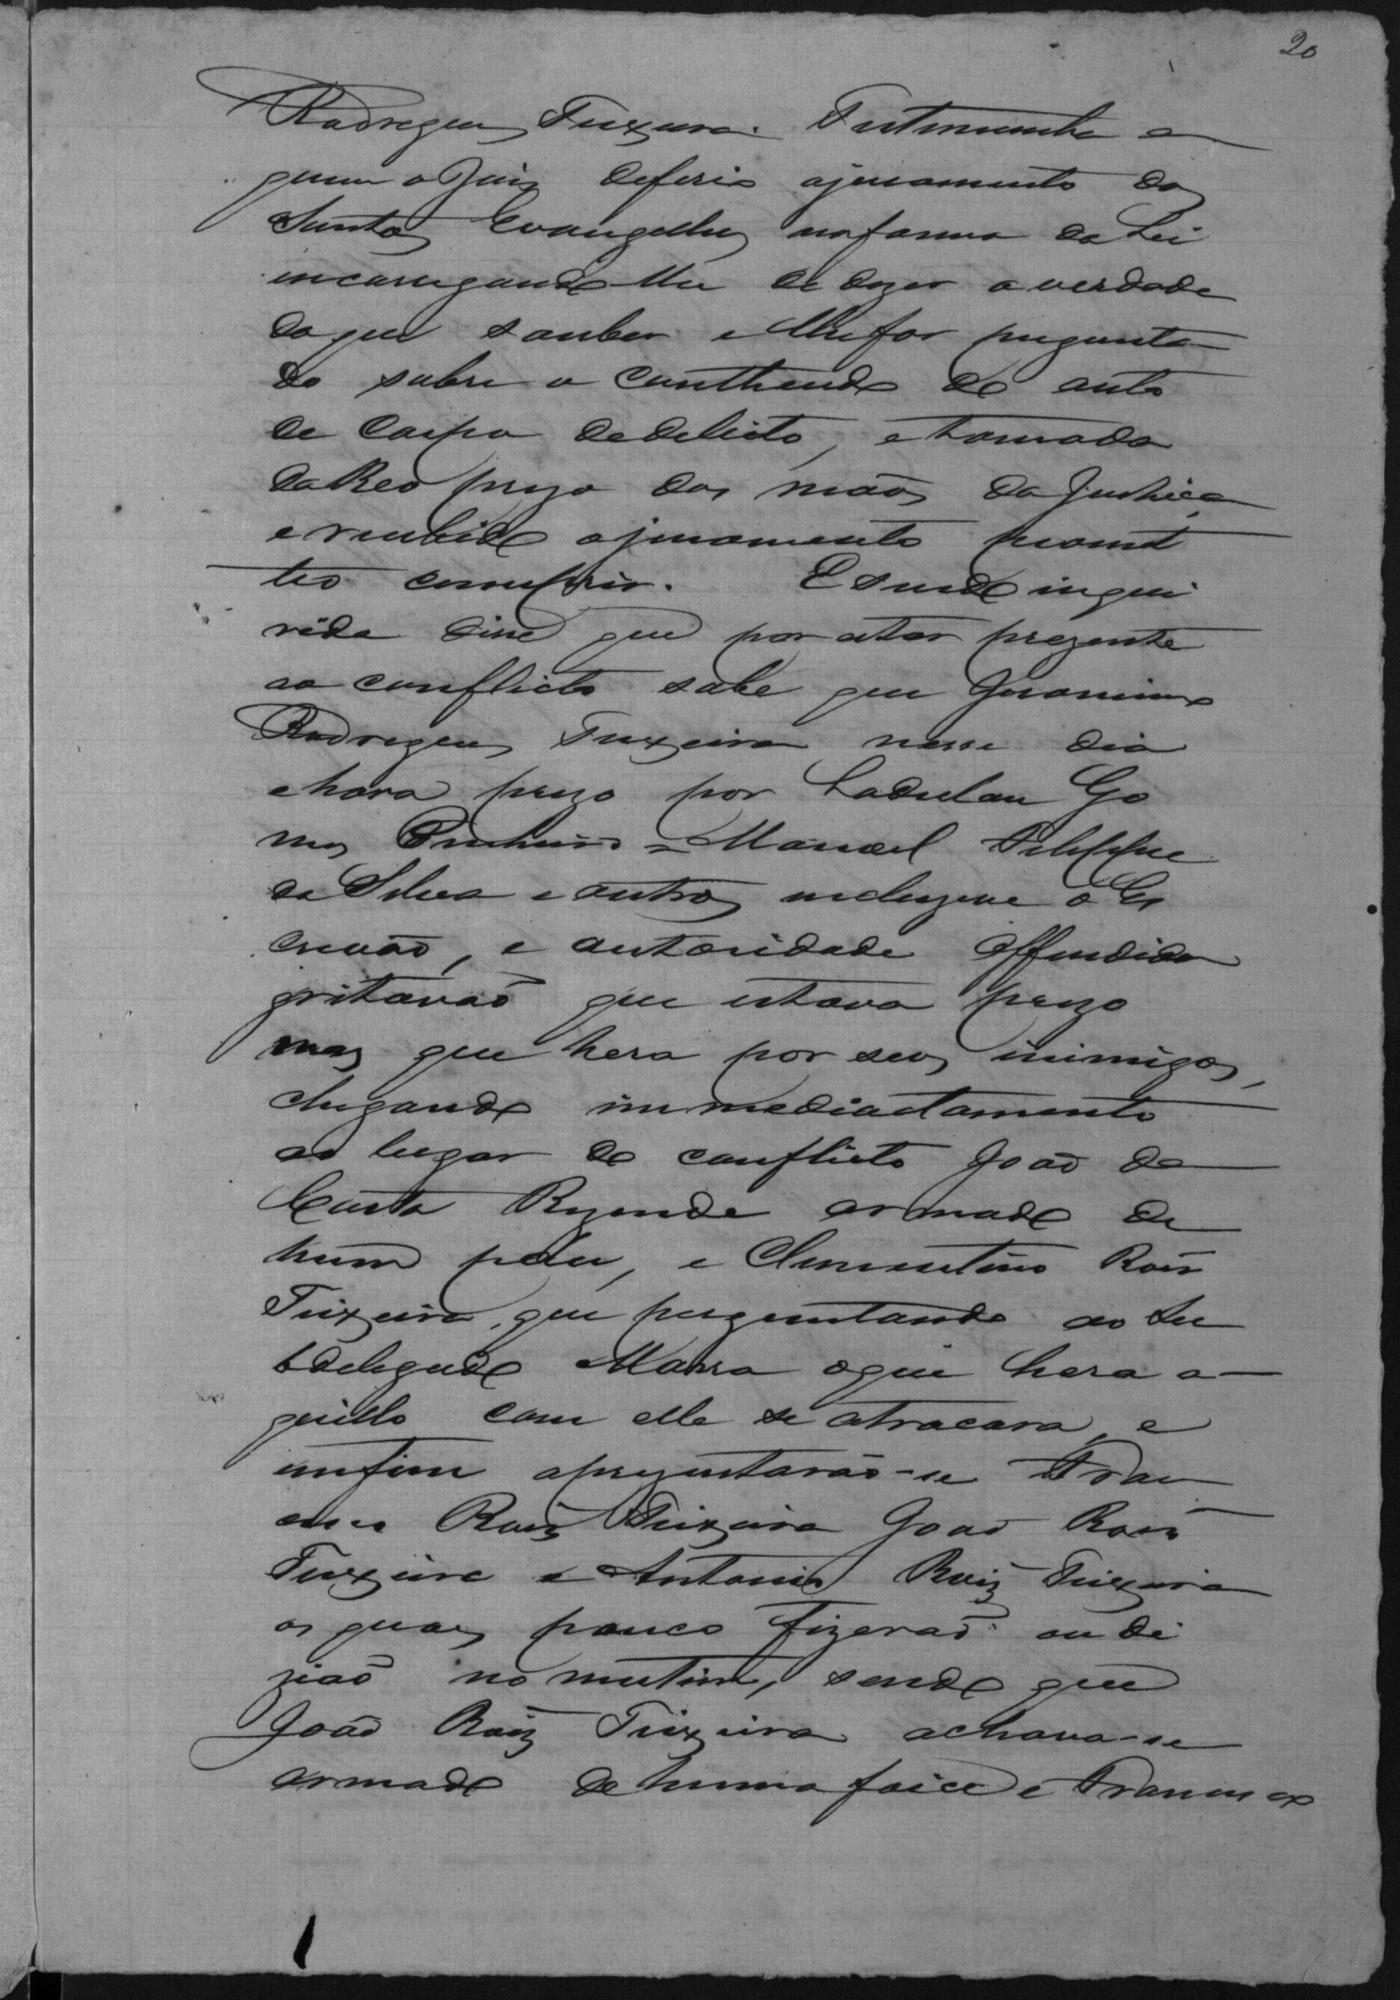 20
Rodrigues Teixeira. Testemunha a
quem o Juiz deferio ojuramento dos
Santos Evangelhos naforma da Lei
incarregando-lhe de dizer a verdade
do que souber e lhefor pergunta
do sobre o conthendo do auto
de Corpo dedelicto, e tomada
do Reo prezo das mãos da Justiça
e recebido ojuramento promet
teo comprir. E sendo inqui
rida disse que por estar prezente
ao conflicto sabe que Jeronimo
Rodrigues Teixeira nesse dia
e hora prezo por Ladislau Go
mes Pinheiro = Manoel Felippe
da Silva e outros incluzive o Es
crivão, e autoridade offendida
gritavão que estava prezo
mas que hera por seus inimigos,
chegando immediactamente
ao lugar do conflicto João da
Costa Rezende armado de
hum páu, e Clementino Roiz
Teixeira, que perguntando ao Su
bdelegado Massa oque hera a-
quillo com elle se atracara, e
imfim aprezentarão-se Fran
cisco Roiz Teixeira João Roiz
Teixeira e Antonio Roiz Teixeira
os quaes pouco fizerão ou di
zião no mutim, sendo que
João Roiz Teixeira achava-se
armado de huma foice e Francisco